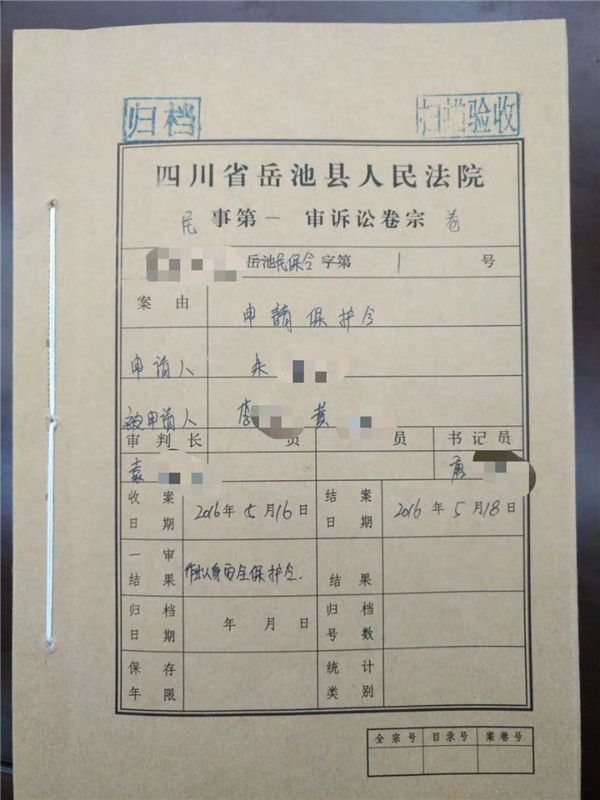 归档 扫描验收
四川省岳池县人民法院
民事第一审诉讼卷宗 卷
岳池民保令字第 1 号
案由 申请保护令
申请人
被申请人 李 黄
审判长 员 员 书记员
袁 唐
收案日期 2016年5月16日 结案日期 2016年5月18日
一审结果 作出人身安全保护令. 结果
归档日期 年 月 日 归档号数
保存年限 统计类别
全宗号 目录号 案卷号